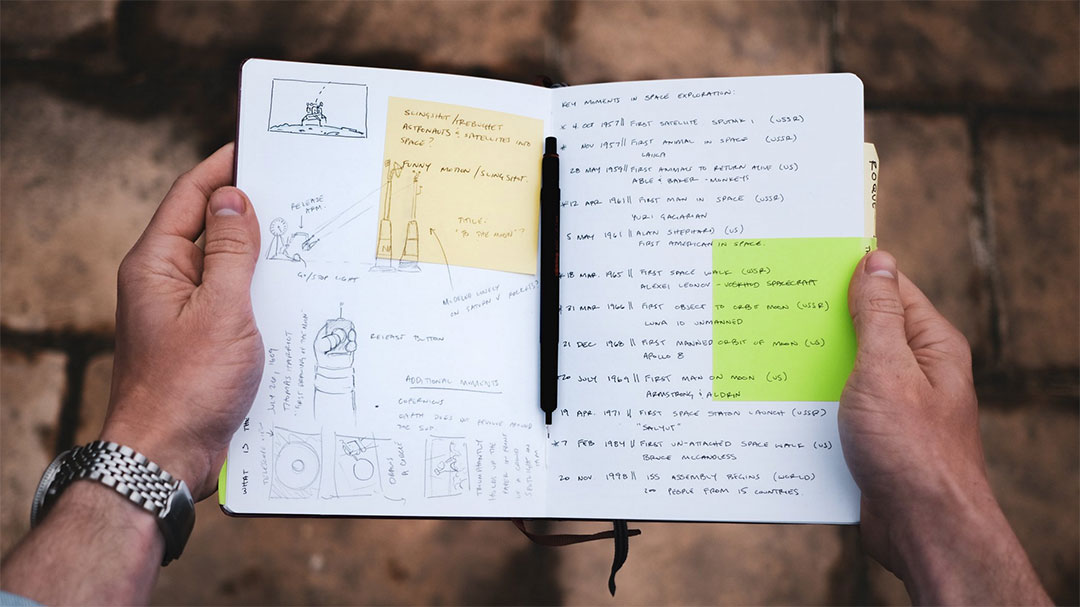 SLINGSHOT/TREBUCHET
ASTRONAUTS & SATELLITES INTO
SPACE?
FUNNY MOTION/SLINGSHOT.
TITLE-
"TO THE MOON"?
RELEASE
ARM.
GO/STOP LIGHT
MODELED LOOSELY
ON SATURN V
RELEASE BUTTON
ADDITIONAL MOMENTS
COPERNICUS
EARTH DOES REVOLVE AROUND
THE SUN.
JULY 26, 1609
THOMAS HARRIOT
FIRST DRAWING OF THE MOON
WHAT IS THE
DRAWS
A CIRCLE
TRIUMPHANTLY
HOLDS UP THE
PAPER IN FRONT
OF A CROWD
SPOTLIGHT ON
HIM
KEY MOMENTS IN SPACE EXPLORATION:
* 4 OCT 1957 || FIRST SATELLITE SPUTNIK 1 (USSR)
* NOV 1957 || FIRST ANIMAL IN SPACE (USSR)
LAIKA
28 MAY 1959 || FIRST ANIMALS TO RETURN ALIVE (US)
ABLE & BAKER - MONKEYS
*12 APR 1961 || FIRST MAN IN SPACE (USSR)
YURI GAGARIAN
5 MAY 1961 || ALAN SHEPHARD (US)
FIRST AMERICAN IN SPACE.
*18 MAR. 1965 || FIRST SPACE WALK (USSR)
ALEXEI LEONOV - VOSKHOD SPACECRAFT
*31 MAR 1966 || FIRST OBJECT TO ORBIT MOON (USSR)
LUNA 10 UNMANNED
21 DEC 1968 || FIRST MANNED ORBIT OF MOON (US)
APOLLO 8
*20 JULY 1969 || FIRST MAN ON MOON (US)
ARMSTRONG & ALDRIN
19 APR. 1971 || FIRST SPACE STATON LAUNCH (USSR)
"SALYUT"
*7 FEB 1984 || FIRST UN-ATTACHED SPACE WALK (US)
BRUCE McCANDLESS
20 NOV 1998 || ISS ASSEMBLY BEGINS (WORLD)
200 PEOPLE FROM 15 COUNTRIES.